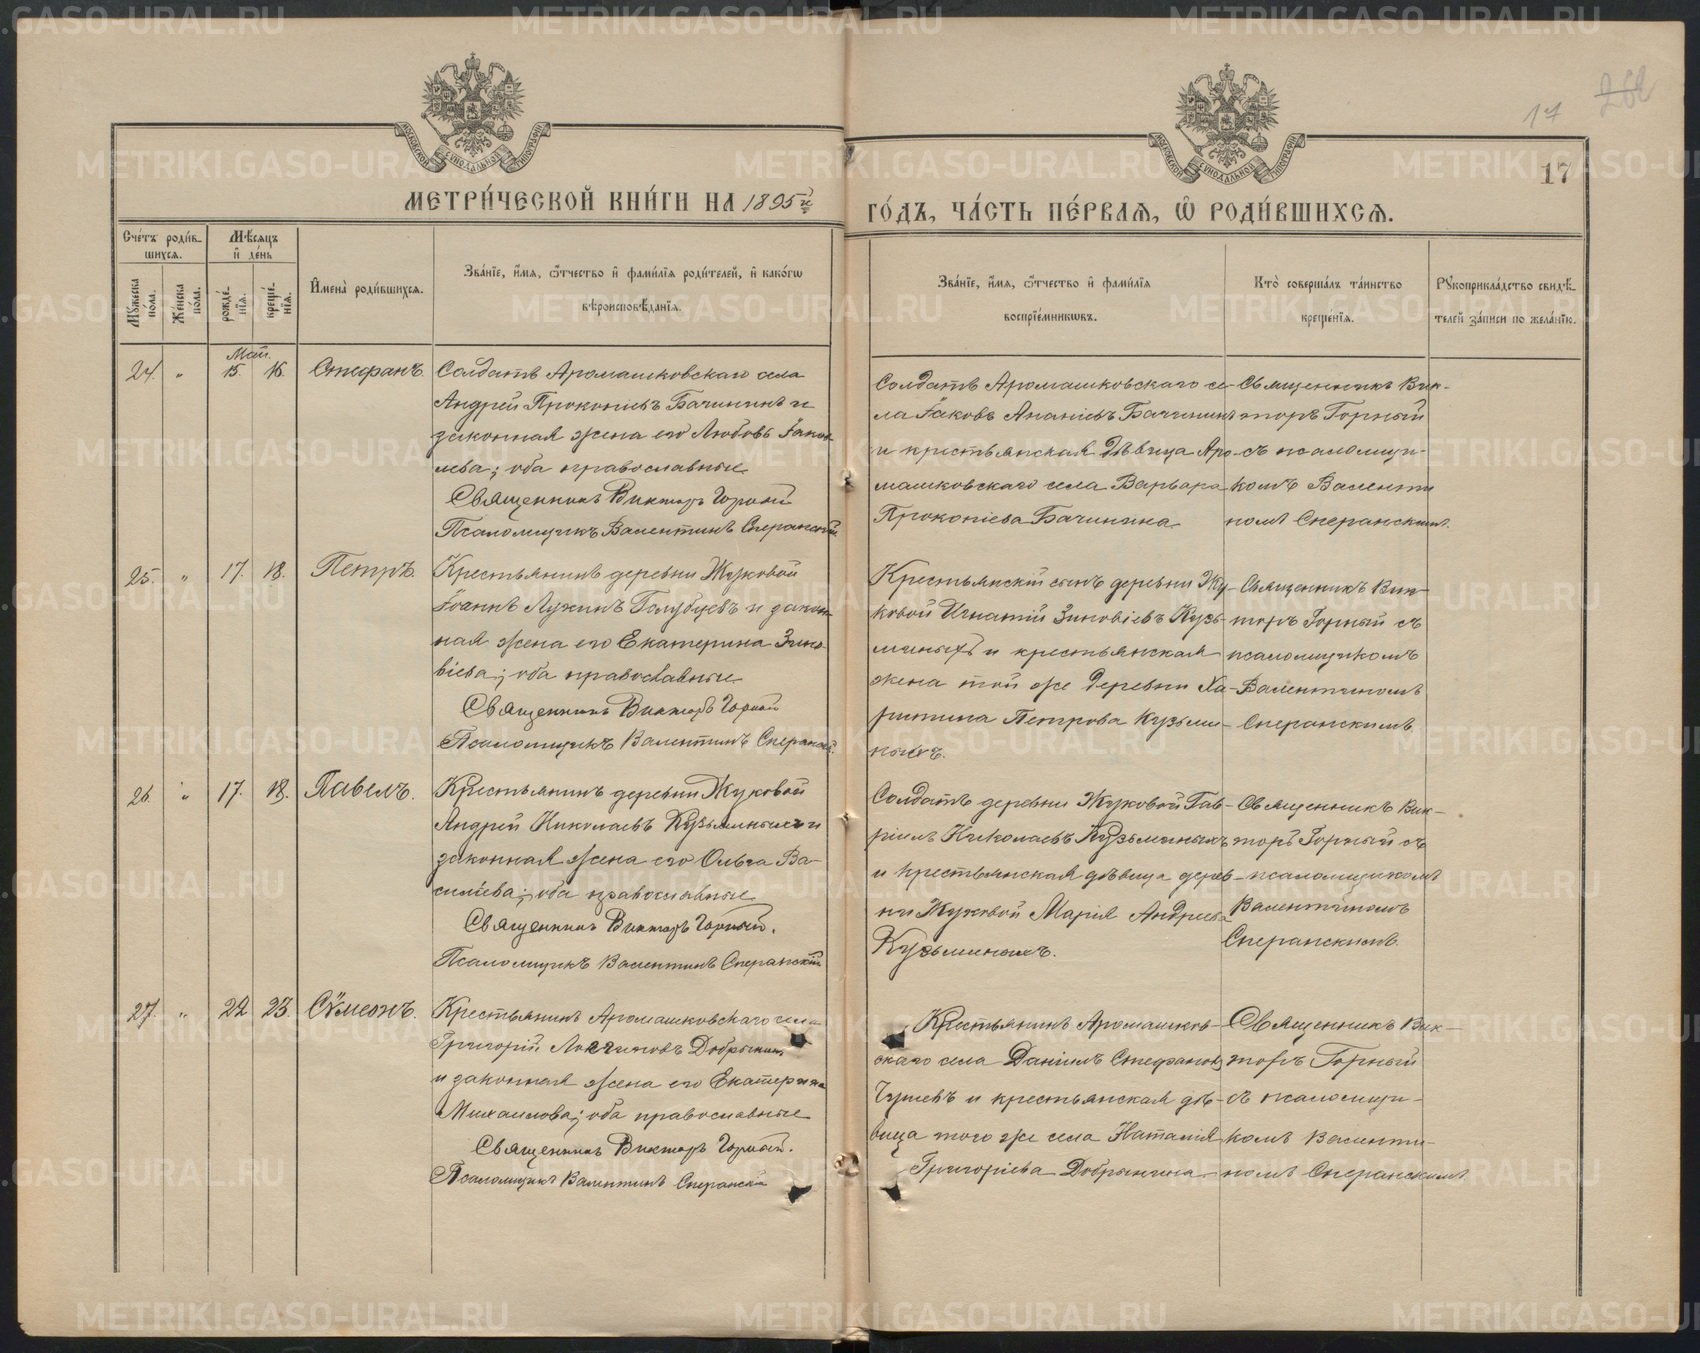 17
262
17
МЕТРИ́ЧЕСКОЙ КНИ́ГИ НА 1895й
ГО́ДЪ, ЧА́СТЬ ПЕ́РВАЯ, Ѽ РОДИ́ВШИХСЯ.
Сче́тъ роди́в-
шихся.
Му́жеска
по́ла.
Же́нска
по́ла.
Мѣ́сяцъ
и де́нь
рожде́-
нїя.
креще́-
нїя.
Имена̀ роди́вшихся.
Зва́нїе, и́мя, ѻ́тчество и фами́лїя роди́телей, и како́гѡ
вѣроисповѣ́данїя.
Зва́нїе, и́мя, ѻ́тчество и фами́лїя
воспрїе́мникѡвъ.
Кто̀ соверша́лъ та́инство
креще́нїя.
Рукоприкла́дство свидѣ́-
телей за́писи по жела́нїю.
Май.
24. „ 15. 16. Стефанъ.
Солдатъ Аромашковскаго села
Андрей Прокопіевъ Бачининъ и
законная жена его Любовь Іаков
лева; оба православные
Священникъ Викторъ Горный
Псаломщикъ Валентинъ Сперанскій
Солдатъ Аромашковскаго се-
ла Іаковъ Ананіевъ Баччининъ
и крестьянская дѣвица Аро-
машковскаго села Варвара
Прокопіева Бачинина
Священникъ Вик-
торъ Горный
съ псаломщи-
комъ Валенти
номъ Сперанскимъ.
25. „ 17. 18. Петръ.
Крестьянинъ деревни Жуковой
Іоаннъ Лукинъ Голубцевъ и закон
ная жена его Екатерина Зино
віева; оба православные
Священникъ Викторъ Горный
Псаломщикъ Валентинъ Сперанскій.
Крестьянскій сынъ деревни Жу-
ковой Игнатій Зиновіевъ Кузь-
миныхъ и крестьянская
жена той же деревни Ха-
ритина Петрова Кузьми-
ныхъ.
Священникъ Вик-
торъ Горный съ
псаломщикомъ
Валентиномъ
Сперанскимъ
26. „ 17. 18. Павелъ.
Крестьянинъ деревни Жуковой
Андрей Николаевъ Кузьминыхъ и
законная жена его Ольга Ва-
силіева; оба православные
Священникъ Викторъ Горный.
Псаломщикъ Валентинъ Сперанскій
Солдатъ деревни Жуковой Гав-
ріилъ Николаевъ Кузьминыхъ
и крестьянская дѣвица дерев-
ни Жуковой Марія Андреева
Кузьминыхъ.
Священникъ Вик-
торъ Горный съ
псаломщикомъ
Валентиномъ
Сперанскимъ.
27. „ 22 23. Сѵмеонъ.
Крестьянинъ Аромашковскаго села
Григорій Логгиновъ Добрынинъ
и законная жена его Екатерина
Михаилова; оба православные
Священникъ Викторъ Горный.
Псаломщикъ Валентинъ Сперанскій
Крестьянинъ Аромашков-
скаго села Даніилъ Стефановъ
и крестьянская дѣ-
вица того же села Наталія
Григоріева Добрынина
Священникъ Вик-
торъ Горный
съ псаломщи-
комъ Валенти-
номъ Сперанскимъ